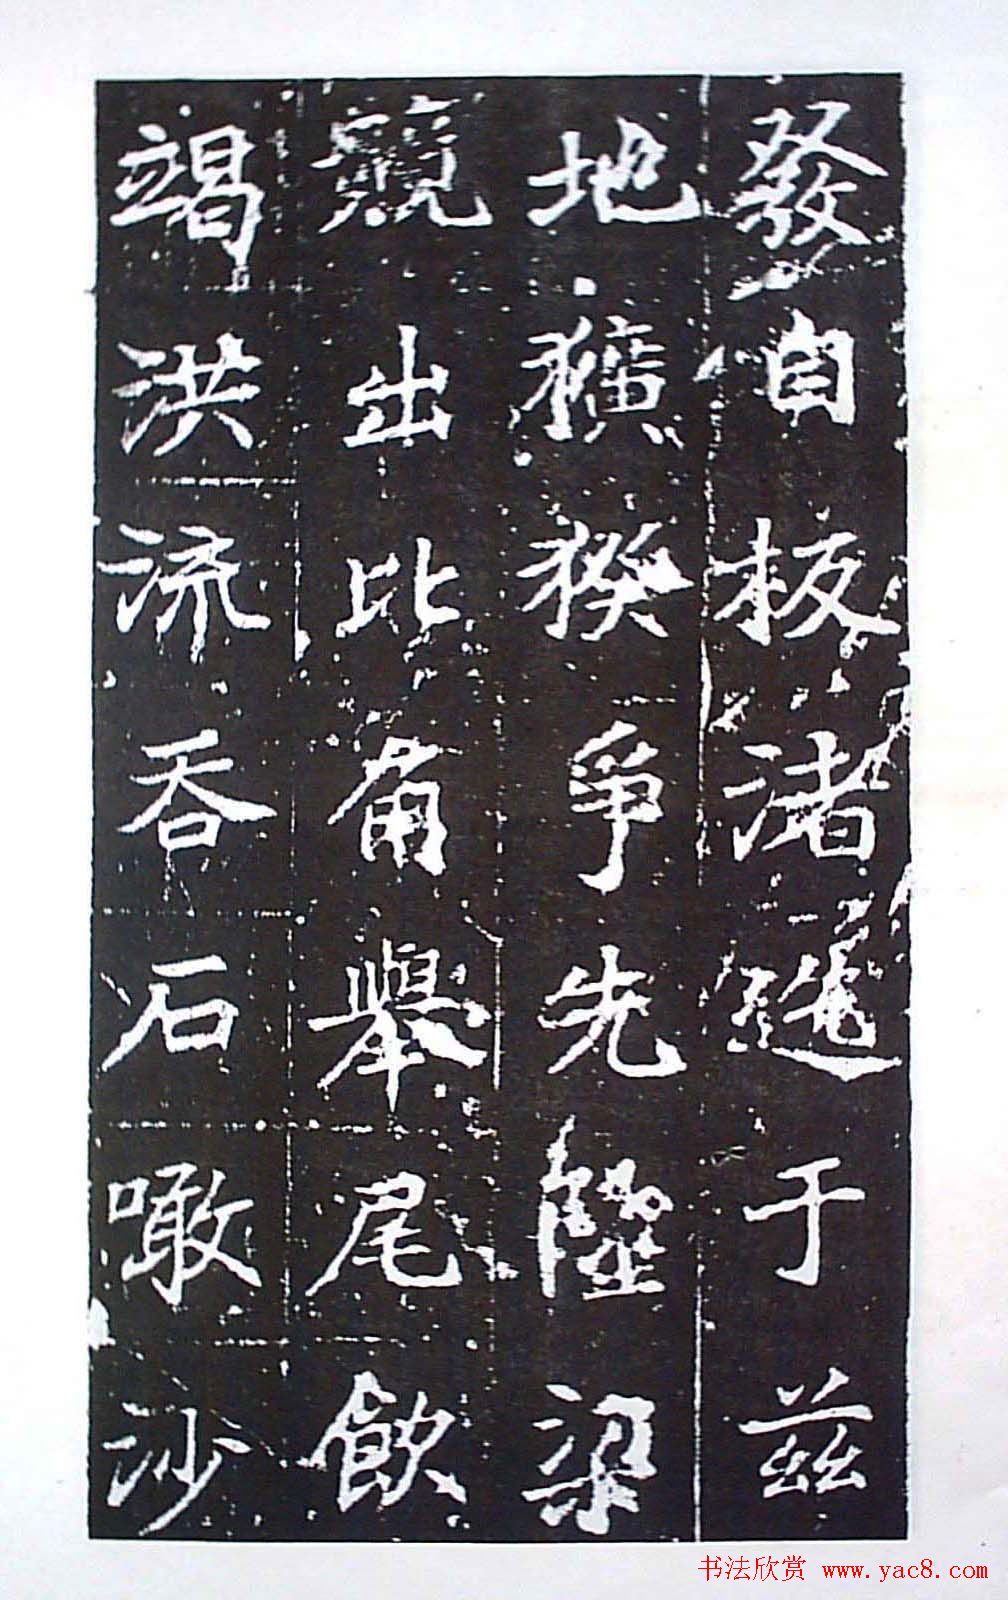 發自板渚于茲
地獷猤爭先陸梁
競出比舉尾飲
竭洪流吞石噉沙
书法欣赏 www.yac8.com